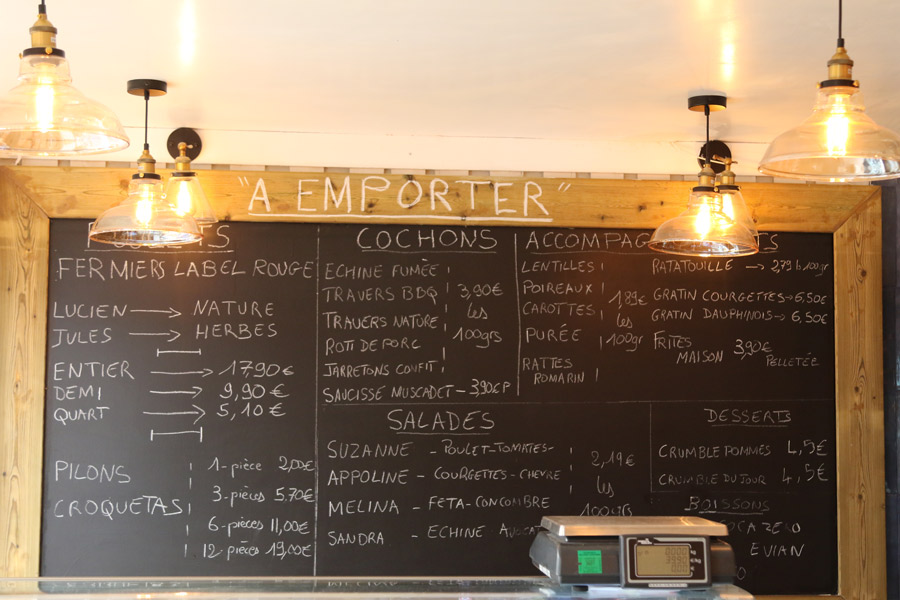 "A EMPORTER"
FERMIERS LABEL ROUGE
LUCIEN → NATURE
JULES → HERBES
ENTIER → 17,90€
DEMI → 9,90€
QUART → 5,10€
PILONS
CROQUETAS
1-pièce 2,00€
3-pièces 5.70€
6-pièces 11,00€
12-pièces 19,00€
COCHONS
ECHINE FUMÉE
TRAVERS BBQ
TRAVERS NATURE
ROTI DE PORC
JARRETONS CONFIT
3,90€
les
100grs
SAUCISSE MUSCADET - 3,90€ P
ACCOMPAG
LENTILLES
POIREAUX
CAROTTES
PURÉE
RATTES
ROMARIN
1,89€
les
100gr
RATATOUILLE → 2,79 les 100gr
GRATIN COURGETTES → 6,50€
GRATIN DAUPHINOIS → 6,50€
FRITES
MAISON 3,90€
PELLETÉE
SALADES
SUZANNE - POULET-TOMATES-
APPOLINE - COURGETTES-CHEVRE
MELINA - FETA-CONCOMBRE
SANDRA - ECHINE
2,19€
les
100grs
DESSERTS
CRUMBLE POMMES 4,5€
CRUMBLE DU JOUR 4,5€
BOISSONS
ZERO
EVIAN